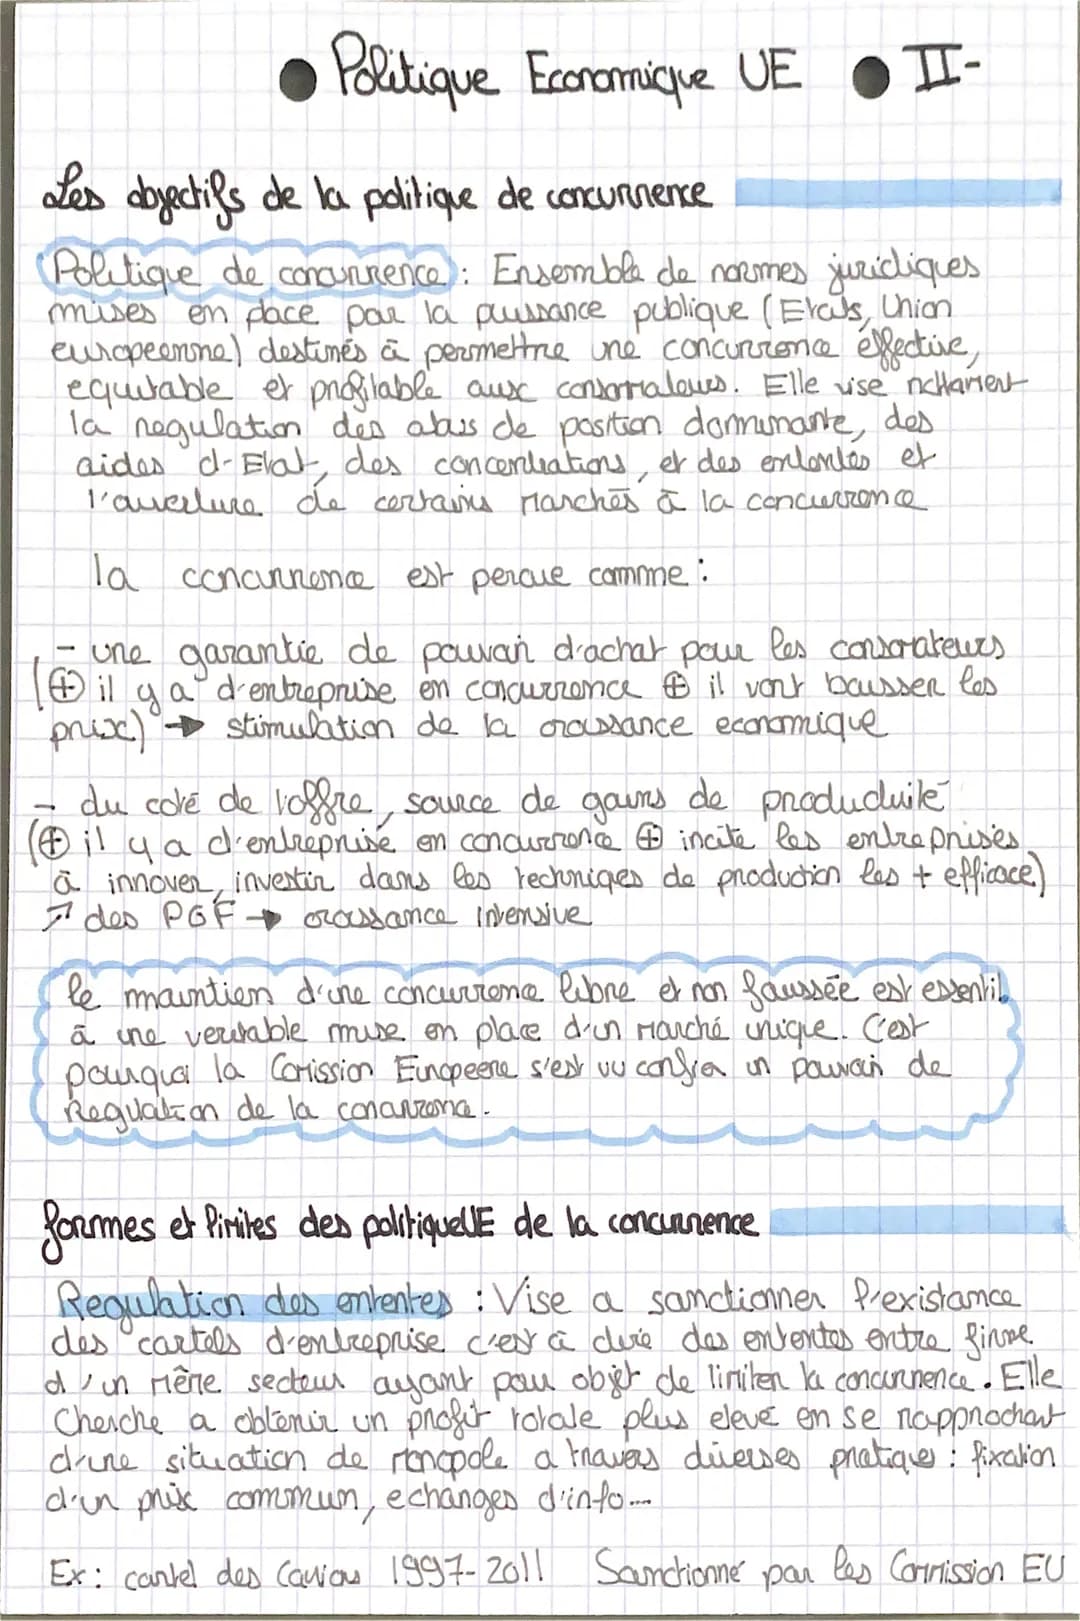 • Politique Economique UE • II-
Les objectifs de la politique de concurrence
Politique de concurrence : Ensemble de normes juridiques
mises en place par la puissance publique (Etats, Union
europeenne) destinés à permettre une concurrence effective,
equitable et profitable aux consomateurs. Elle vise nottament
la regulation des abus de position dominante, des
aides d-Etat, des concentrations, et des ententes et
l'ouverture de certains marchés à la concurrence
la concurrence est percue comme :
- une garantie de pouvoir d'achat pour les consomateurs
(⊕ il y a d'entreprise en concurrence ⊕ il vont baisser les
prix) → stimulation de la croissance economique
- du coté de l'offre, source de gains de productivité
(⊕ il y a d'entreprise en concurrence ⊕ incite les entreprises
à innover, investir dans les techniques de production les + efficace)
↗ des PGF → croissance intensive
le maintien d'une concurrence libre et non faussée est essentil
à une veritable mise en place d'un marché unique. C'est
pourquoi la Comission Europeene s'est vu confier un pouvoir de
Regulation de la concurrence.
formes et limites des politique UE de la concurrence
Regulation des ententes : Vise a sanctionner l'existance
des cartels d'entreprise c'est à dire des ententes entre firme
d'un même secteur ayant pour objet de limiter la concurrence. Elle
Cherche a obtenir un profit totale plus elevé en se rapprochant
d'une situation de monopole a travers diverses pratiques : fixation
d'un prix commun, echanges d'info...
Ex : cartel des Camions 1997-2011 Sanctionné par les Commission EU